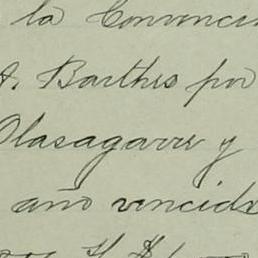 la Convenci
A. Barthes por
Olasagarre y
año vencido